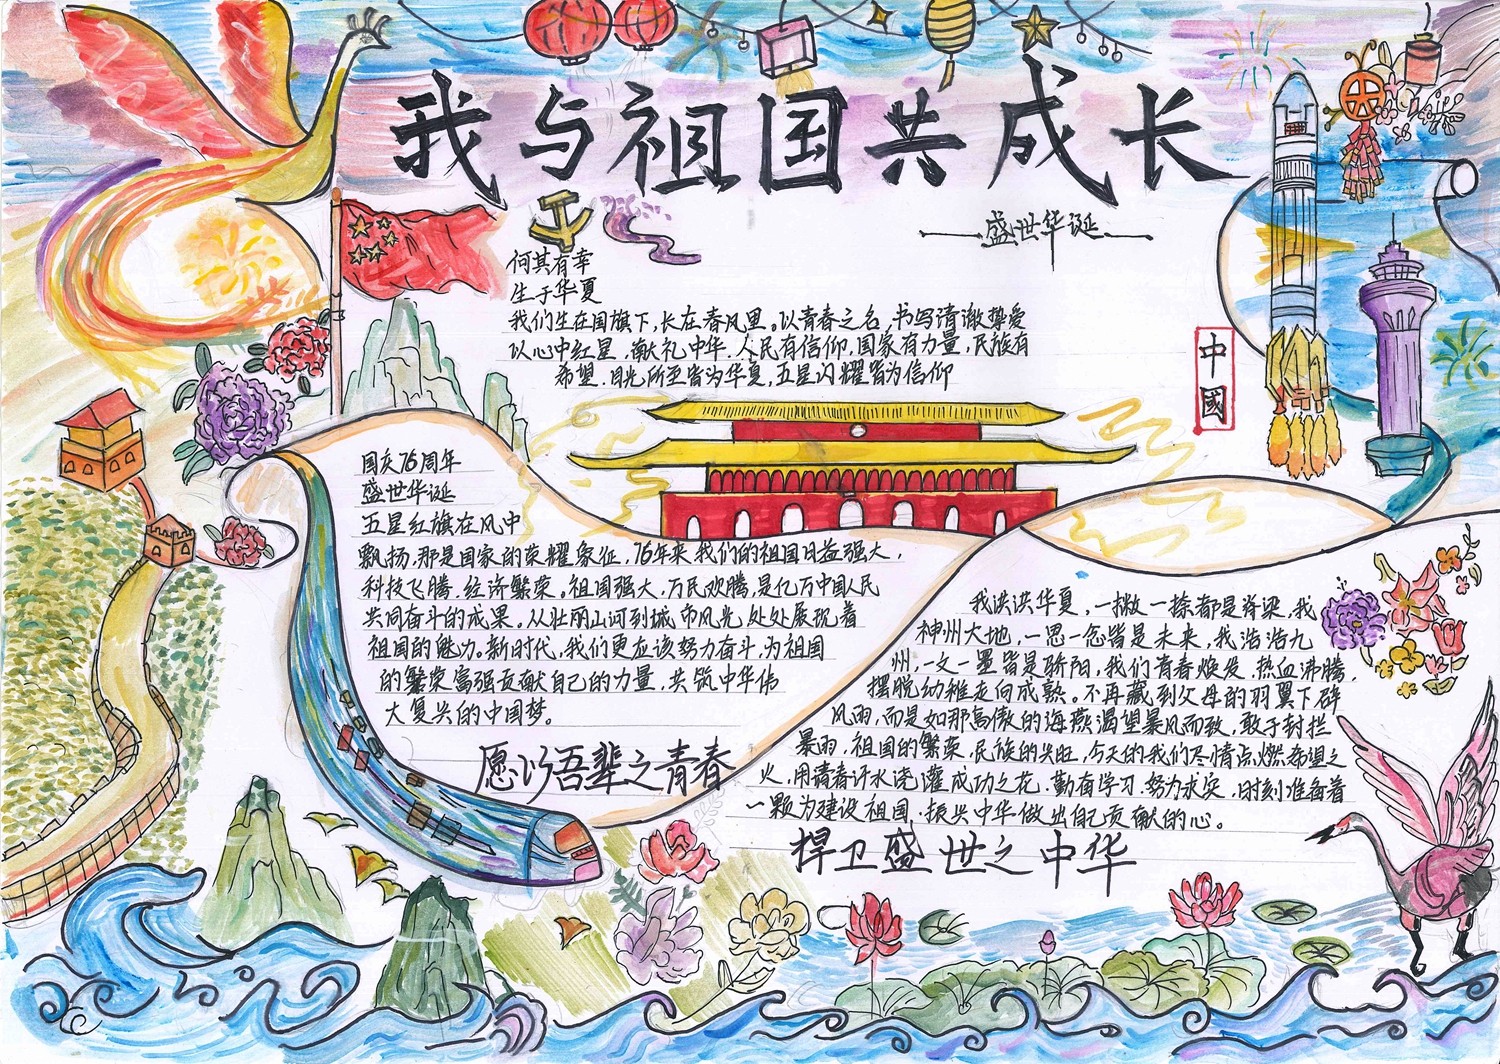 我与祖国共成长
盛世华诞
何其有幸
生于华夏
我们生在国旗下，长在春风里。以青春之名，书写清澈挚爱
以心中红星，献礼中华，人民有信仰，国家有力量，民族有
希望，目光所至皆为华夏，五星闪耀皆为信仰
中國
国庆76周年
盛世华诞
五星红旗在风中
飘扬，那是国家的荣耀象征，76年来我们的祖国日益强大，
科技飞腾，经济繁荣。祖国强大，万民欢腾，是亿万中国人民
共同奋斗的成果，从壮丽山河到城市风光，处处展现着
祖国的魅力。新时代，我们更应该努力奋斗，为祖国
的繁荣富强贡献自己的力量，共筑中华伟
大复兴的中国梦。
愿以吾辈之青春
我泱泱华夏，一撇一捺都是脊梁，我
神州大地，一思一念皆是未来，我浩浩九
州，一文一墨皆是骄阳，我们青春焕发，热血沸腾，
摆脱幼稚走向成熟。不再藏到父母的羽翼下避
风雨，而是如那高傲的海燕渴望暴风雨致，敢于封拦
暴雨，祖国的繁荣，民族的兴旺，今天的我们尽情点燃希望之
火，用青春汗水浇灌成功之花，勤奋学习，努力求实，时刻准备着
一颗为建设祖国，振兴中华做出自己贡献的心。
捍卫盛世之中华